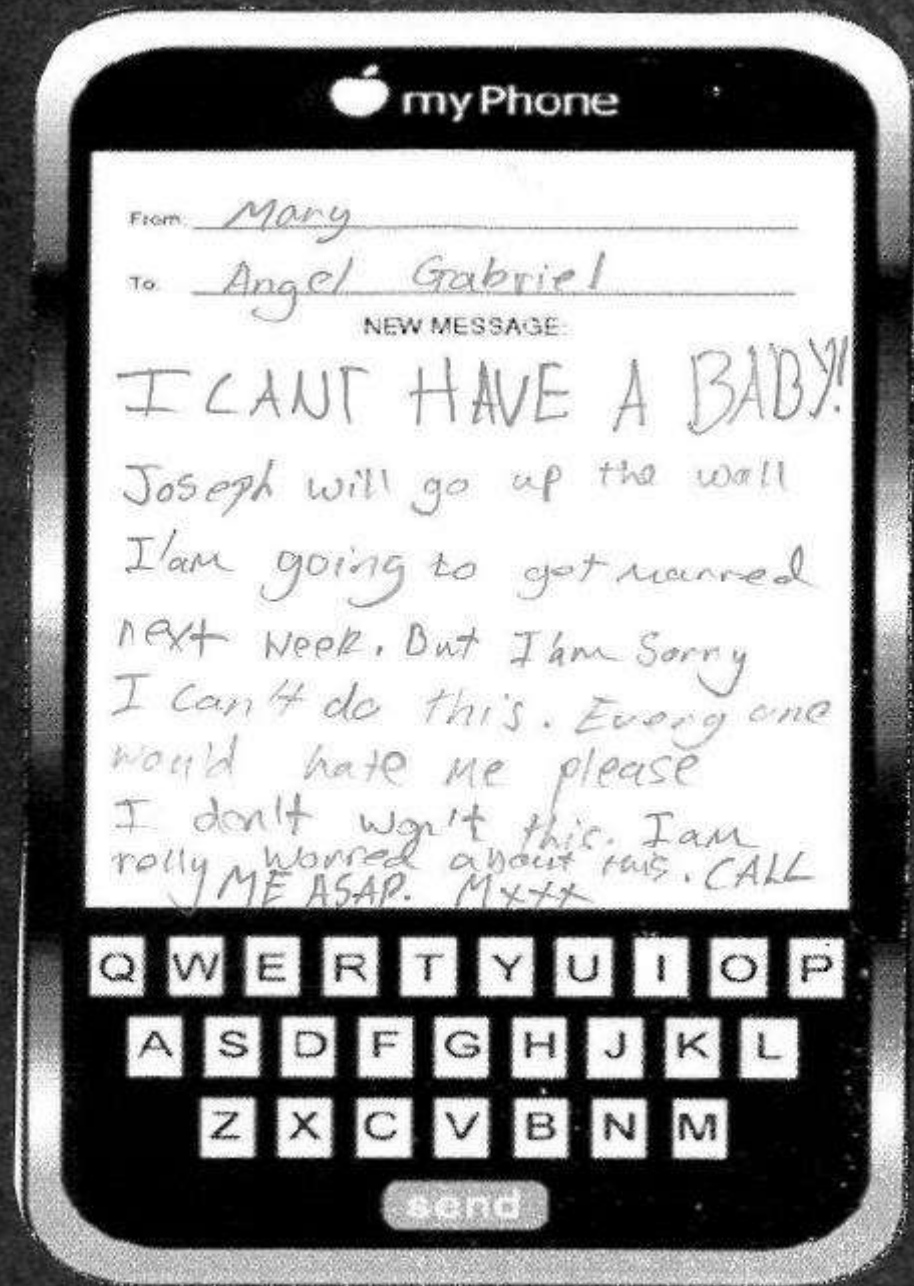 myPhone
From: Mary
To: Angel Gabriel
NEW MESSAGE:
I CANT HAVE A BABY!!
Joseph will go up the wall
I'am going to get marred
next week. But I'am Sorry
I can't do this. Every one
would hate me please
I don't won't this. I am
rolly worred about this. CALL
ME ASAP. Mxxx
Q W E R T Y U I O P
A S D F G H J K L
Z X C V B N M
send